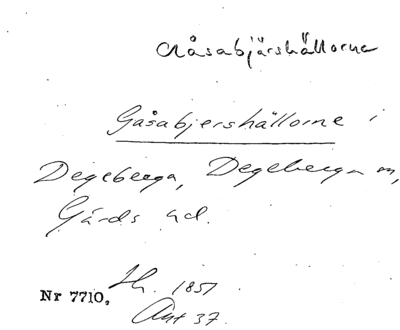 Gåsabjärshällorna
Gåsabjershällorne i
Degeberga, Degeberga sn,
Gärds hd.
Nr 7710. Hr. 1851
Ant 37.